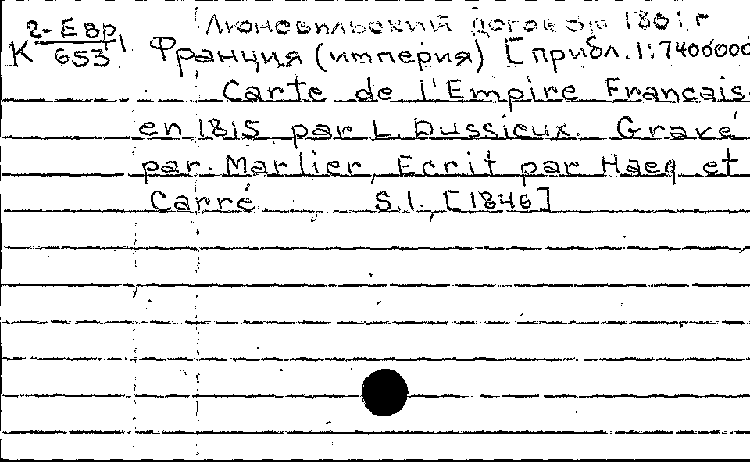 Люневильский договор 1801 г
К 2-Евр/653 Франция (империя) [прибл. 1:7400000
Carte de l'Empire Francais
en 1815 par L. Dussieux. Gravé
par Marlier, Ecrit par Haeq et
Carré S.l., [1846]